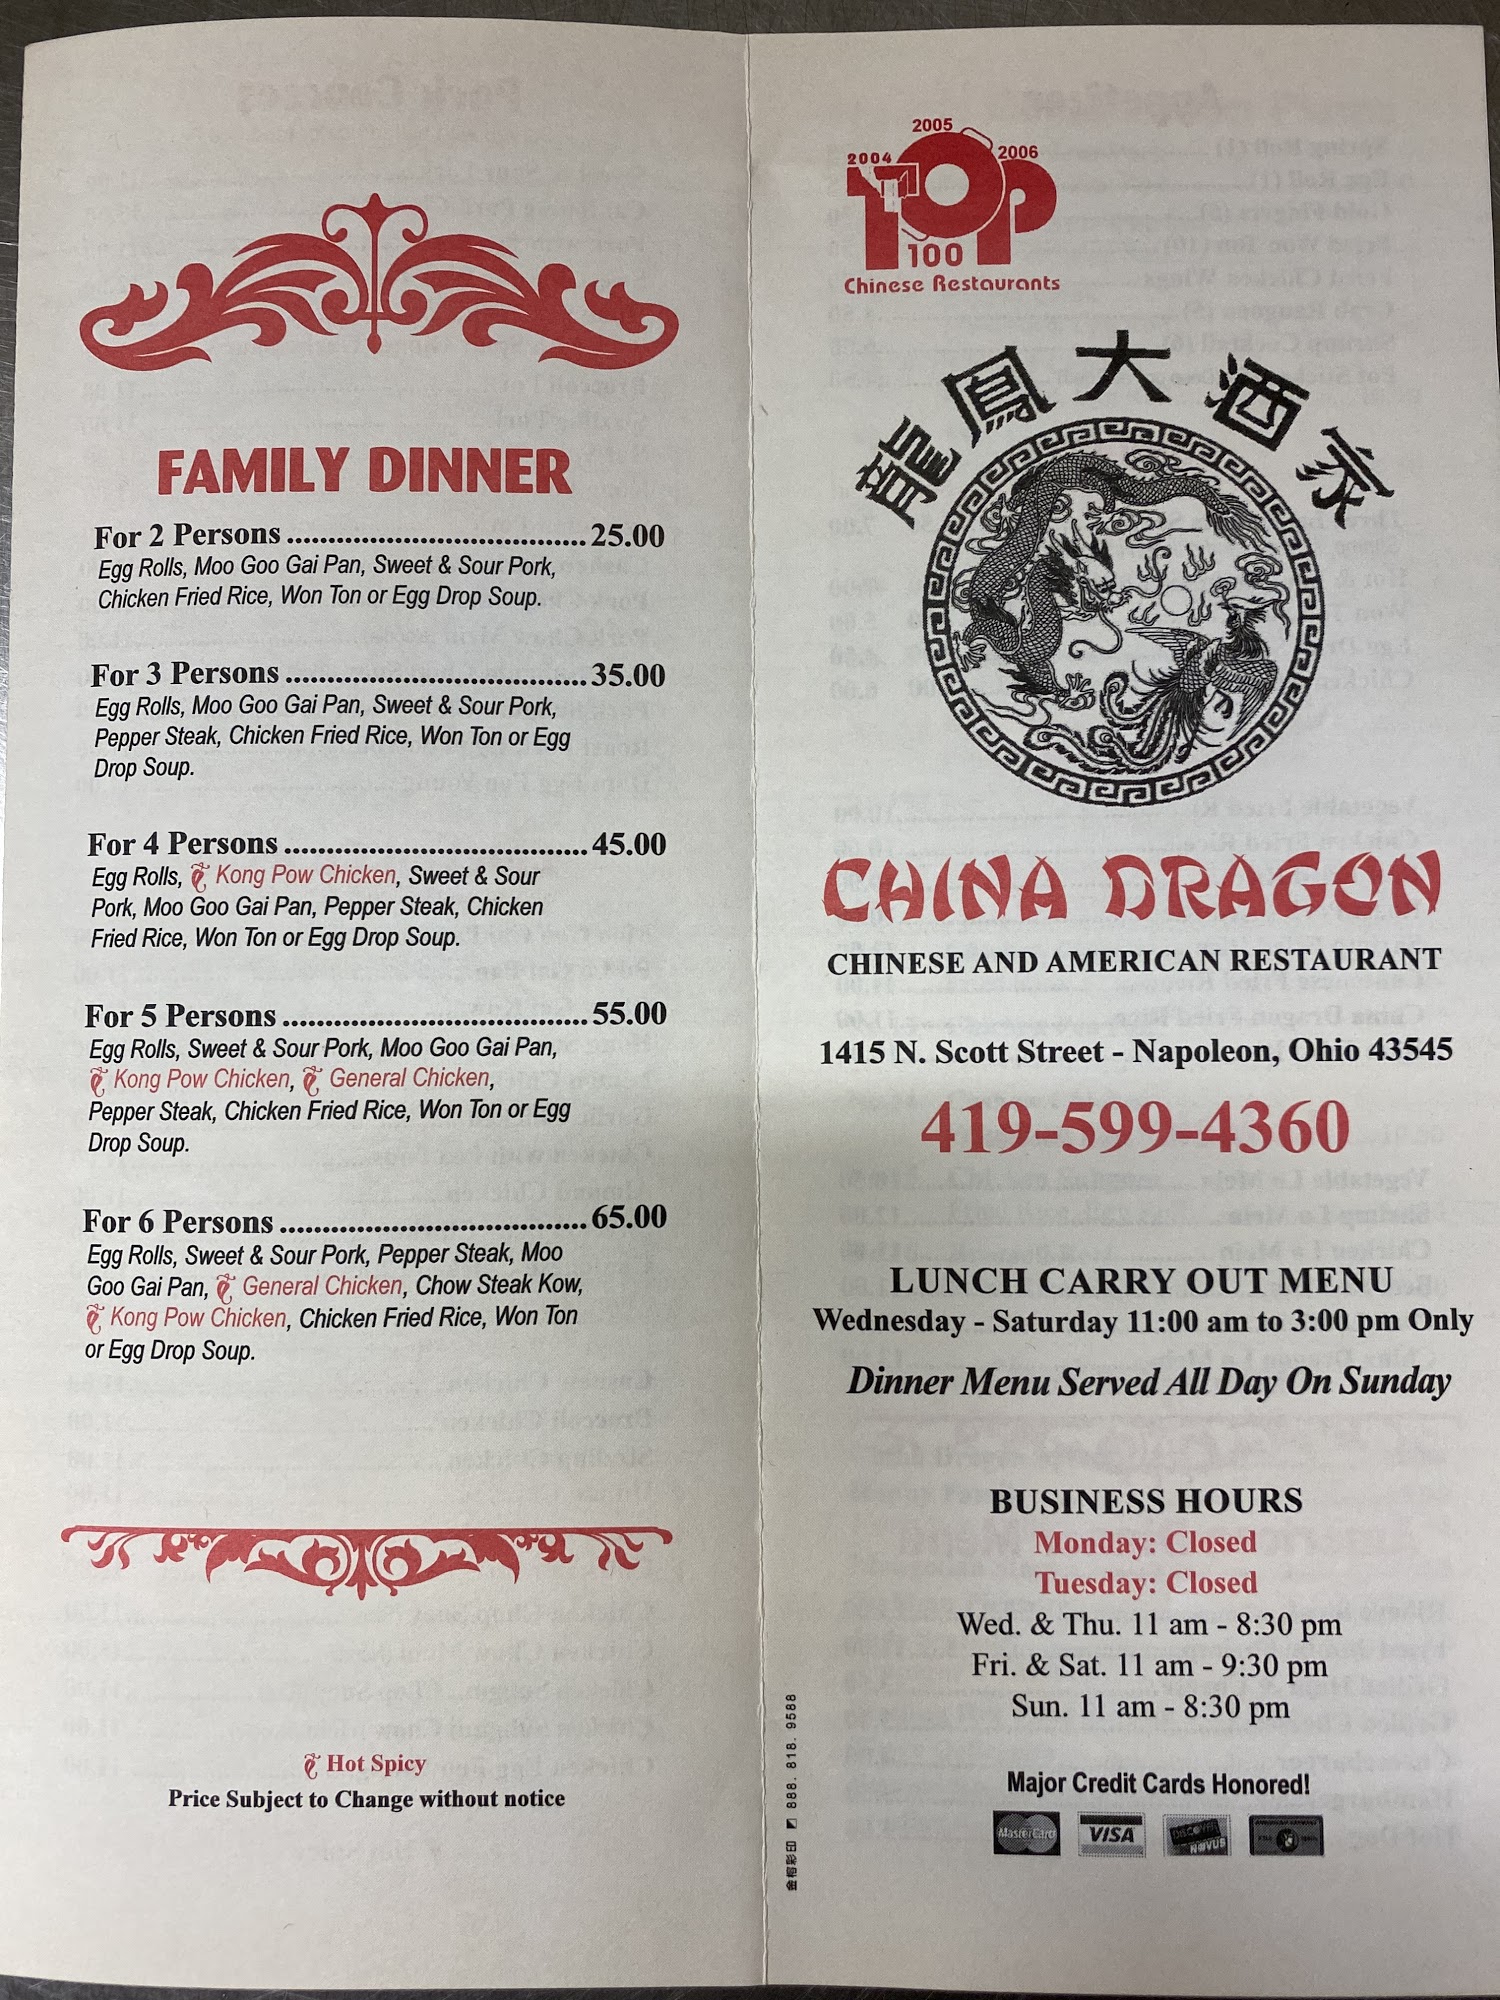 FAMILY DINNER
For 2 Persons ........................................ 25.00
Egg Rolls, Moo Goo Gai Pan, Sweet & Sour Pork,
Chicken Fried Rice, Won Ton or Egg Drop Soup.
For 3 Persons ........................................ 35.00
Egg Rolls, Moo Goo Gai Pan, Sweet & Sour Pork,
Pepper Steak, Chicken Fried Rice, Won Ton or Egg
Drop Soup.
For 4 Persons ........................................ 45.00
Egg Rolls, Kong Pow Chicken, Sweet & Sour
Pork, Moo Goo Gai Pan, Pepper Steak, Chicken
Fried Rice, Won Ton or Egg Drop Soup.
For 5 Persons ........................................ 55.00
Egg Rolls, Sweet & Sour Pork, Moo Goo Gai Pan,
Kong Pow Chicken, General Chicken,
Pepper Steak, Chicken Fried Rice, Won Ton or Egg
Drop Soup.
For 6 Persons ........................................ 65.00
Egg Rolls, Sweet & Sour Pork, Pepper Steak, Moo
Goo Gai Pan, General Chicken, Chow Steak Kow,
Kong Pow Chicken, Chicken Fried Rice, Won Ton
or Egg Drop Soup.
Hot Spicy
Price Subject to Change without notice
2004 2005 2006
TOP
100
Chinese Restaurants
龍鳳大酒家
CHINA DRAGON
CHINESE AND AMERICAN RESTAURANT
1415 N. Scott Street - Napoleon, Ohio 43545
419-599-4360
LUNCH CARRY OUT MENU
Wednesday - Saturday 11:00 am to 3:00 pm Only
Dinner Menu Served All Day On Sunday
BUSINESS HOURS
Monday: Closed
Tuesday: Closed
Wed. & Thu. 11 am - 8:30 pm
Fri. & Sat. 11 am - 9:30 pm
Sun. 11 am - 8:30 pm
Major Credit Cards Honored!
MasterCard VISA DISCOVER NOVUS
888. 818. 9588